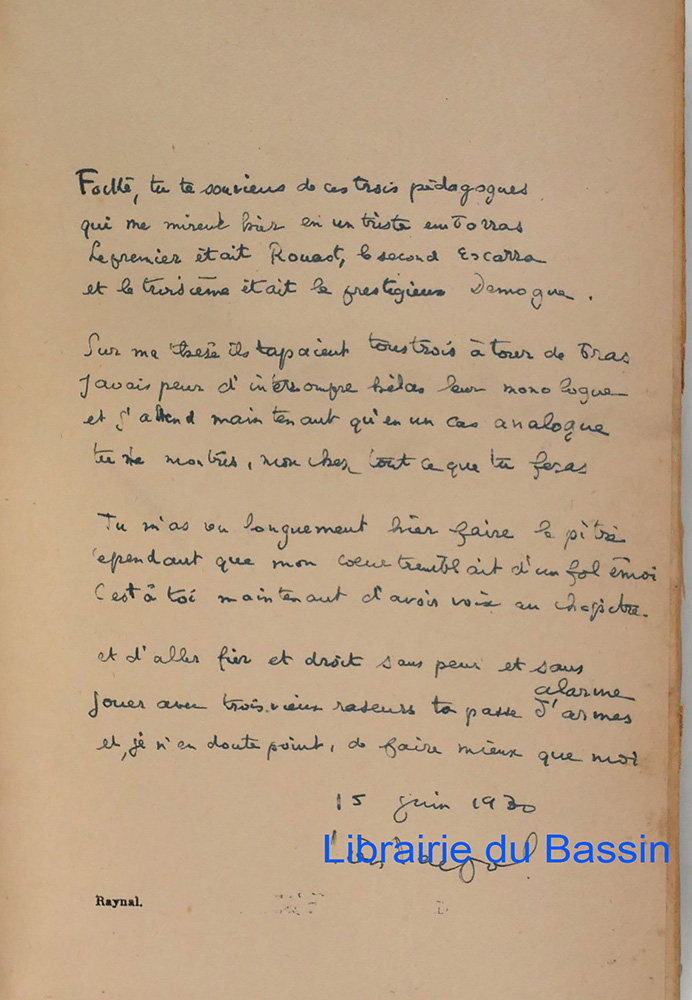 tu te souviens de ces trois pédagogues
qui me mirent hier en un triste embarras
Le premier était Rouast, le second Escarra
et le troisième était le prestigieux Demogue.
Sur ma thèse ils tapaient tous trois à tour de bras
J'avais peur d'interrompre hélas leur monologue
et j'attend maintenant qu'en un cas analogue
tu me montres, mon cher, tout ce que tu feras
Tu m'as vu longuement hier faire le pitre
cependant que mon coeur tremblait d'un fol émoi
C'est à toi maintenant d'avoir voix au chapitre.
et d'aller fier et droit sans peur et sans
alarme
Jouer avec trois vieux raseurs ta passe d'armes
et, je n'en doute point, de faire mieux que moi
15 juin 1930
Librairie du Bassin
Raynal.